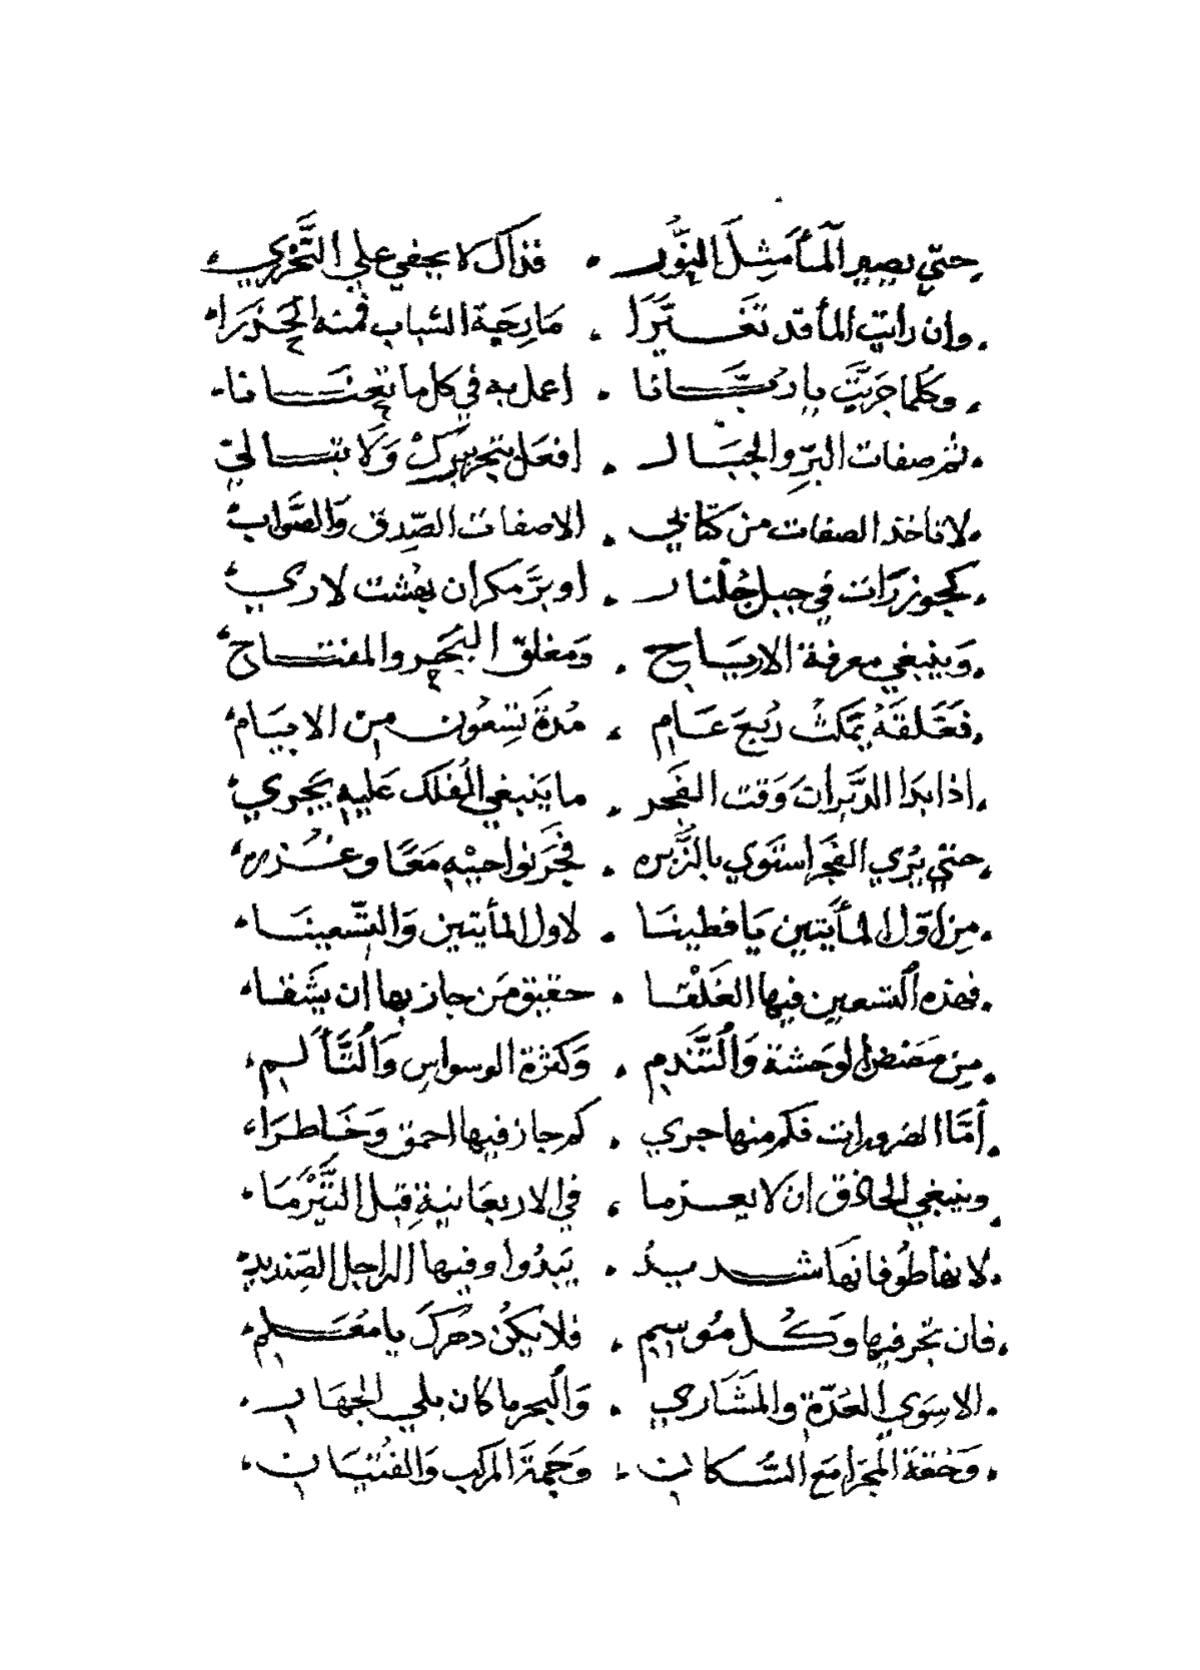 حتّي يصير المأ مثل النوّر . فذاك لا يخفي علي التحرّي
وان رات المأ قد تغيّرا . مارجة الشباب فمنه الحذرا
وكلما جربّت يا ربّانا . اعمل به في كل ما
ثم صفات البرّ والجبال . افعل بتجريبك ولا تبالي
لا تاخذ الصفات من كتابي . الا صفات الصّدق والصّواب
كجوزرات في جبل جلنار . او برّ مكران بهشت لاري
وينبغي معرفة الارياح . ومغلق البحر والمفتاح
فغلقه يمكث ربع عام . مدة تسعون من الايام
اذا بدا الدّبران وقت الفجر . ما ينبغي الفلك عليه يجري
حتي يري الفجر استوي بالزّبره . فجر نواحيْه معًا وغزره
من اوّل المأيتين يا فطينا . لاول المأيتين والتّسعينا
فهذه التسعين فيها الغلْقا . حقيق من جاز بها ان يشقا
من مضض الوحشة والتّندم . وكثرة الوسواس والتّألم
أمّا الضرورات فكم منها جري . كم جاز فيها احمق وخاطرا
وينبغي الحاذق ان لا يعزما . في الاربعانية قبل التّيْرما
لا طوفانها شديدُ . يبدوا وفيها الراجل الصّنديد
فان تجر فيها وكل موسم . فلا يكن دهرك يا معلم
الا سوي العدّة والمشاري . والبحر ما كان يلي الجهار
وخفّة المجرا مع السّكان . وجمة المركب والفتيان